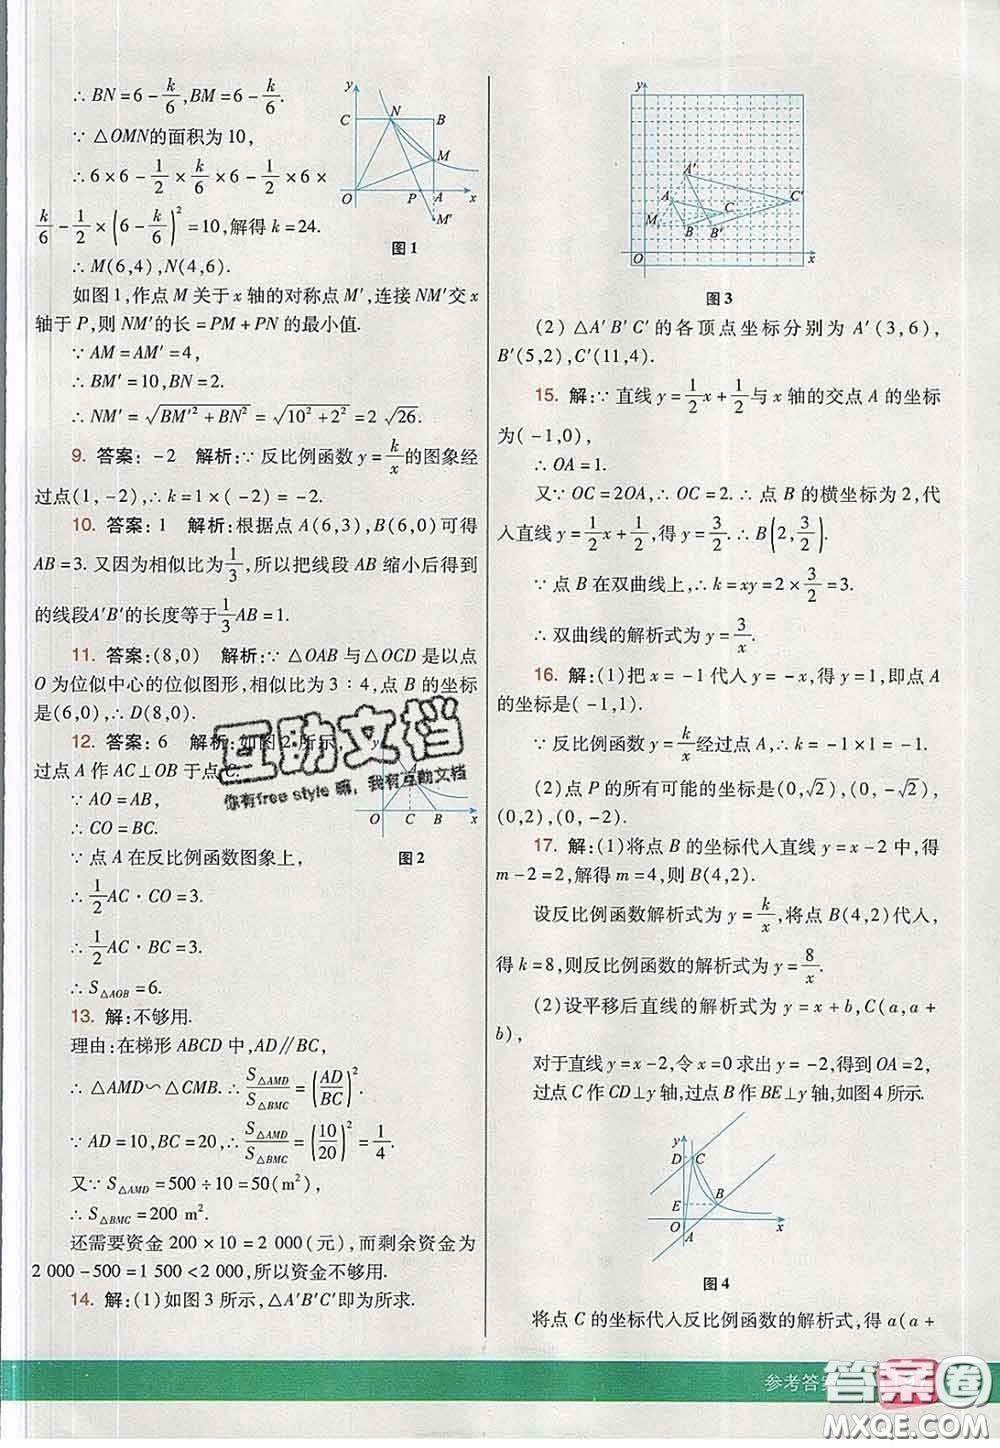 ∴ BN = 6 - k/6, BM = 6 - k/6.
∵ △OMN的面积为 10,
∴ 6×6 - 1/2 × k/6 × 6 - 1/2 × 6 ×
k/6 - 1/2 × (6 - k/6)² = 10, 解得 k = 24.
∴ M(6,4), N(4,6).
如图 1, 作点 M 关于 x 轴的对称点 M′, 连接 NM′交 x
轴于 P, 则 NM′的长 = PM + PN 的最小值.
∵ AM = AM′ = 4,
∴ BM′ = 10, BN = 2.
∴ NM′ = √(BM′² + BN²) = √(10² + 2²) = 2√26.
y
C
N
B
M
O
P
A
x
M′
图 1
9. 答案: -2 解析: ∵ 反比例函数 y = k/x 的图象经
过点(1, -2), ∴ k = 1×( -2) = -2.
10. 答案: 1 解析: 根据点 A(6,3), B(6,0)可得
AB = 3. 又因为相似比为 1/3, 所以把线段 AB 缩小后得到
的线段A′B′的长度等于 1/3 AB = 1.
11. 答案: (8,0) 解析: ∵ △OAB 与△OCD 是以点
O 为位似中心的位似图形, 相似比为 3 : 4, 点 B 的坐标
是(6,0), ∴ D(8,0).
12. 答案: 6 解析: 如图 2 所示,
过点 A 作 AC⊥OB 于点 C.
∵ AO = AB,
∴ CO = BC.
∵ 点 A 在反比例函数图象上,
∴ 1/2 AC · CO = 3.
∴ 1/2 AC · BC = 3.
∴ S△AOB = 6.
y
O
C
B
x
图 2
13. 解: 不够用.
理由: 在梯形 ABCD 中, AD∥BC,
∴ △AMD∽△CMB. ∴ S△AMD/S△BMC = (AD/BC)².
∵ AD = 10, BC = 20, ∴ S△AMD/S△BMC = (10/20)² = 1/4.
又∵ S△AMD = 500 ÷ 10 = 50(m²),
∴ S△BMC = 200 m².
还需要资金 200 × 10 = 2 000(元), 而剩余资金为
2 000 - 500 = 1 500 < 2 000, 所以资金不够用.
14. 解: (1)如图 3 所示, △A′B′C′即为所求.
y
A′
A
C′
C
M
B
B′
O
x
图 3
(2) △A′B′C′的各顶点坐标分别为 A′(3,6),
B′(5,2), C′(11,4).
15. 解: ∵ 直线 y = 1/2 x + 1/2 与 x 轴的交点 A 的坐标
为( -1,0),
∴ OA = 1.
又∵ OC = 2OA, ∴ OC = 2. ∴ 点 B 的横坐标为 2, 代
入直线 y = 1/2 x + 1/2, 得 y = 3/2. ∴ B(2, 3/2).
∵ 点 B 在双曲线上, ∴ k = xy = 2 × 3/2 = 3.
∴ 双曲线的解析式为 y = 3/x.
16. 解: (1)把 x = -1 代入 y = -x, 得 y = 1, 即点 A
的坐标为( -1,1).
∵ 反比例函数 y = k/x 经过点 A, ∴ k = -1×1 = -1.
(2)点 P 的所有可能的坐标是(0, √2), (0, -√2),
(0,2), (0, -2).
17. 解: (1)将点 B 的坐标代入直线 y = x - 2 中, 得
m - 2 = 2, 解得 m = 4, 则 B(4,2).
设反比例函数解析式为 y = k/x, 将点 B(4,2)代入,
得 k = 8, 则反比例函数的解析式为 y = 8/x.
(2)设平移后直线的解析式为 y = x + b, C(a, a +
b),
对于直线 y = x - 2, 令 x = 0 求出 y = -2, 得到 OA = 2,
过点 C 作 CD⊥y 轴, 过点 B 作 BE⊥y 轴, 如图 4 所示.
y
D
C
E
B
O
x
A
图 4
将点 C 的坐标代入反比例函数的解析式, 得 a(a +
互助文档
你有free style 嘛, 我有互助文档
参考答案
答案卷
MXQE.COM